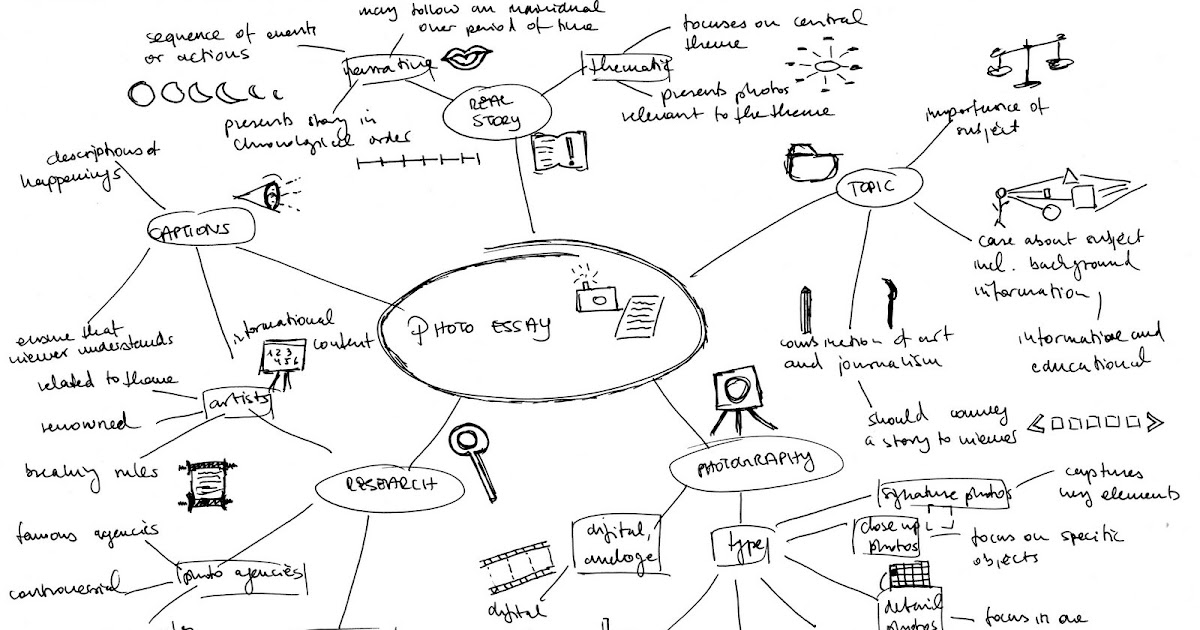 may follow an individual
over period of time
sequence of events
or actions
narrative
presents story in
chronological order
REAL
STORY
thematic
focuses on central
theme
presents photos
relevant to the theme
importance of
subject
TOPIC
care about subject
incl. background
information
informative and
educational
combination of art
and journalism
should convey
a story to viewer
descriptions of
happenings
CAPTIONS
ensure that
viewer understands
informational
content
1 2 3
4 5 6
PHOTO ESSAY
related to theme
artists
renowned
breaking rules
RESEARCH
famous agencies
photo agencies
controversial
PHOTOGRAPHY
digital,
analoge
digital
type
signature photos
captures
key elements
close up
photos
focus on specific
objects
detail
photos
focus in one